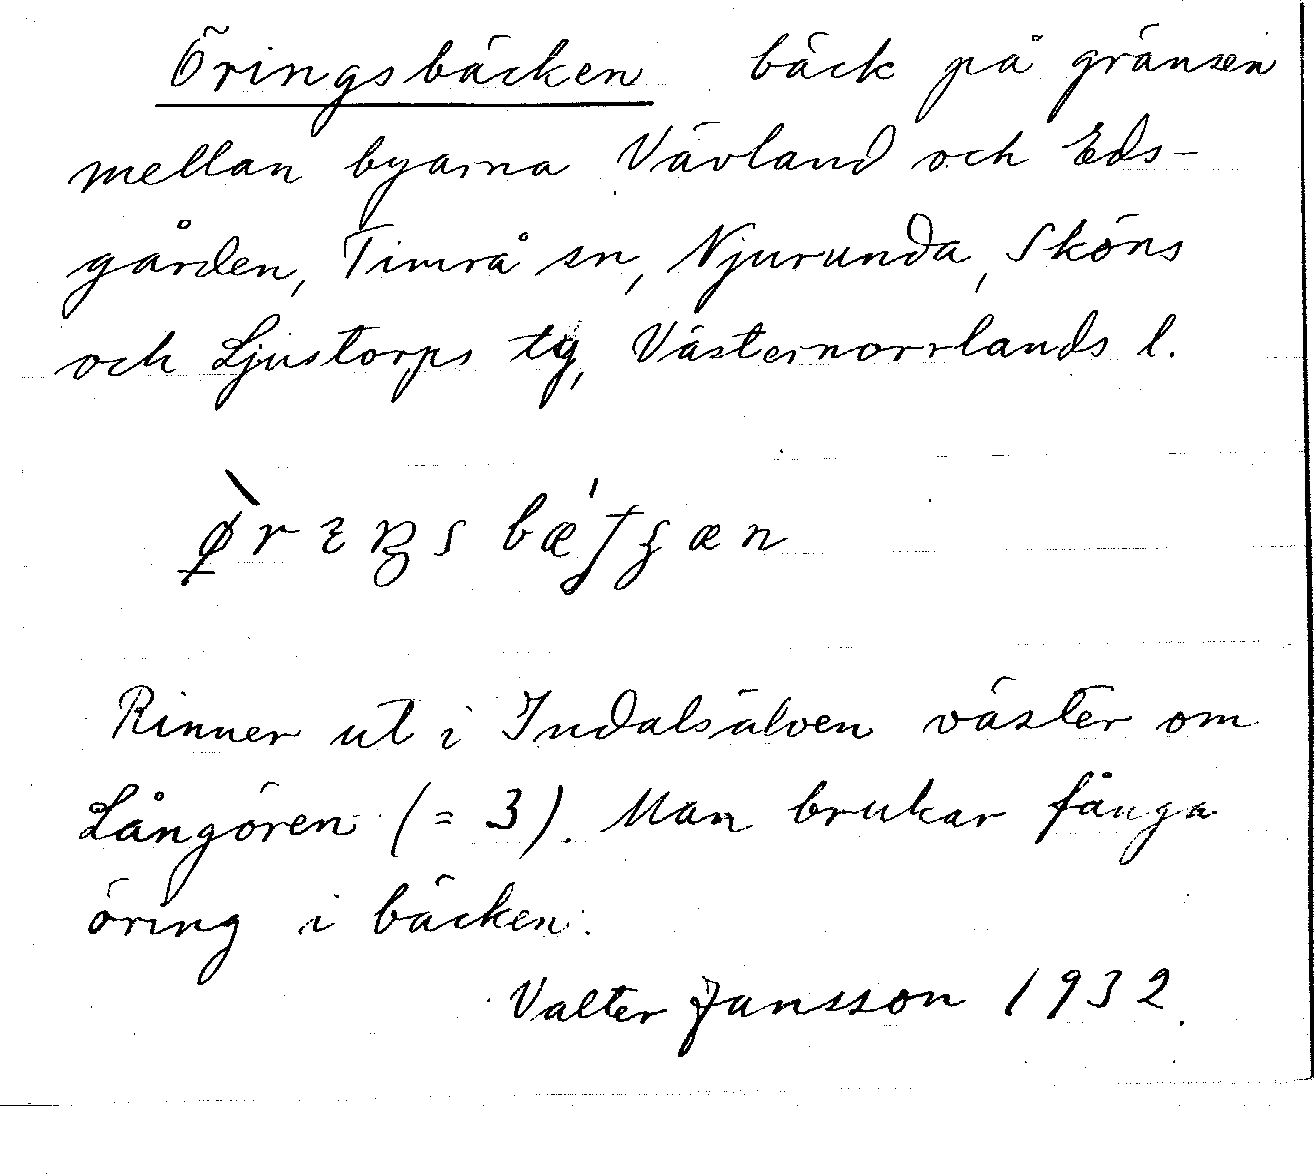 Öringsbäcken bäck på gränsen
mellan byarna Vävland och Eds-
gården, Timrå sn, Njurunda, Sköns
och Ljustorps tg, Västernorrlands l.
Rinner ut i Indalsälven väster om
Långören (= 3). Man brukar fånga
öring i bäcken.
Valter Jansson 1932.